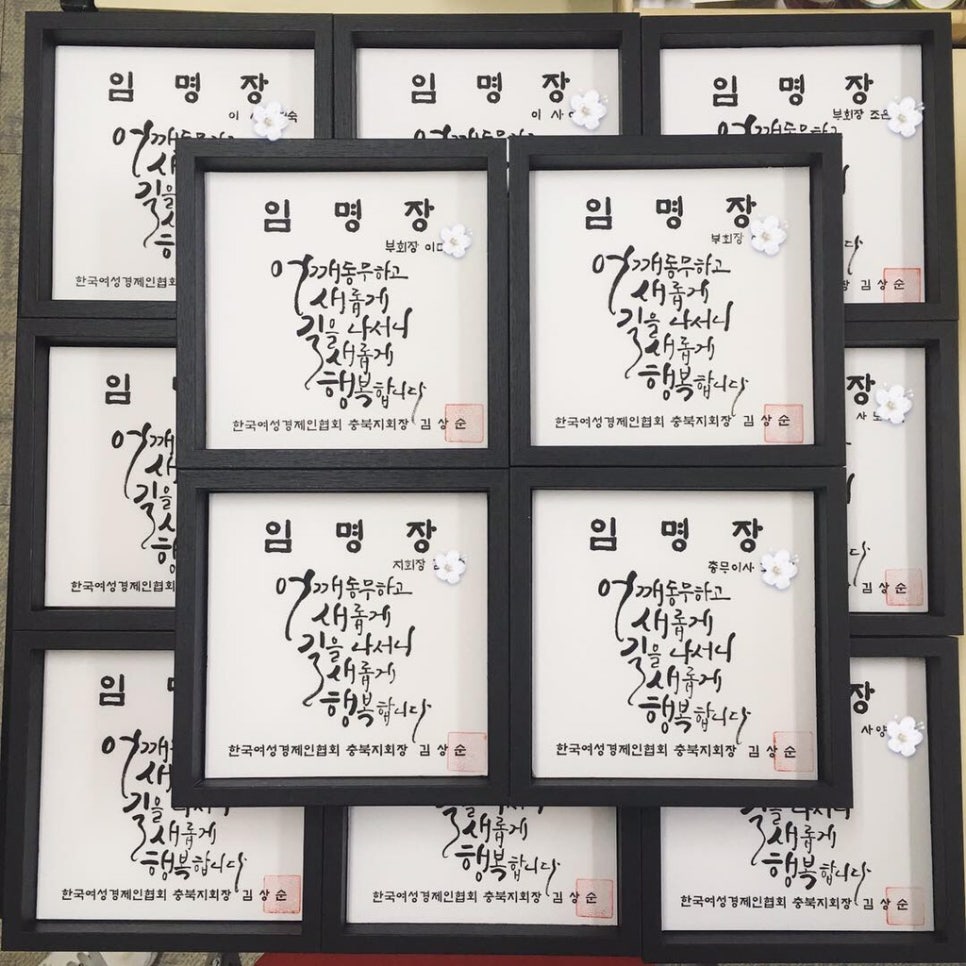 임 명 장
이 사 숙
어깨동무하고
새
길을
행
한국여성경제인협회
임 명 장
이 사
임 명 장
부회장 조은
깨동무하고
김 상 순
임 명 장
부회장 이
어깨동무하고
새롭게
길을 나서니
새롭게
행복합니다
한국여성경제인협회 충북지회장 김 상 순
임 명 장
부회장
어깨동무하고
새롭게
길을 나서니
새롭게
행복합니다
한국여성경제인협회 충북지회장 김 상 순
임
어깨
새
길을
새
행
한국여성경제인협회
장
사
다
장 김 상 순
임 명 장
지회장
어깨동무하고
새롭게
길을 나서니
새롭게
행복합니다
한국여성경제인협회 충북지회장 김 상 순
임 명 장
총무이사
어깨동무하고
새롭게
길을 나서니
새롭게
행복합니다
한국여성경제인협회 충북지회장 김 상 순
임
어깨
새
길을 나서니
새롭게
행복합니다
한국여성경제인협회 충북지회장 김 상 순
길을 나서니
새롭게
행복합니다
한국여성경제인협회 충북지회장 김 상 순
장
사 양
길을 나서니
새롭게
행복합니다
한국여성경제인협회 충북지회장 김 상 순